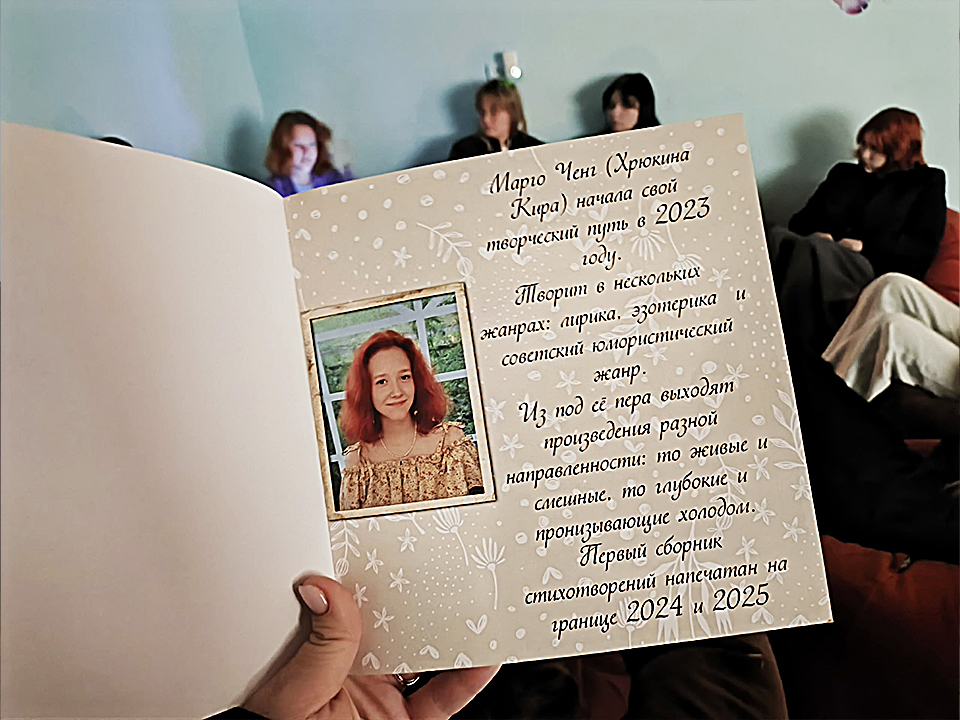 Марго Ченг (Хрюкина
Кира) начала свой
творческий путь в 2023
году.
Творит в нескольких
жанрах: лирика, эзотерика и
советский юмористический
жанр.
Из под её пера выходят
произведения разной
направленности: то живые и
смешные, то глубокие и
пронизывающие холодом.
Первый сборник
стихотворений напечатан на
границе 2024 и 2025